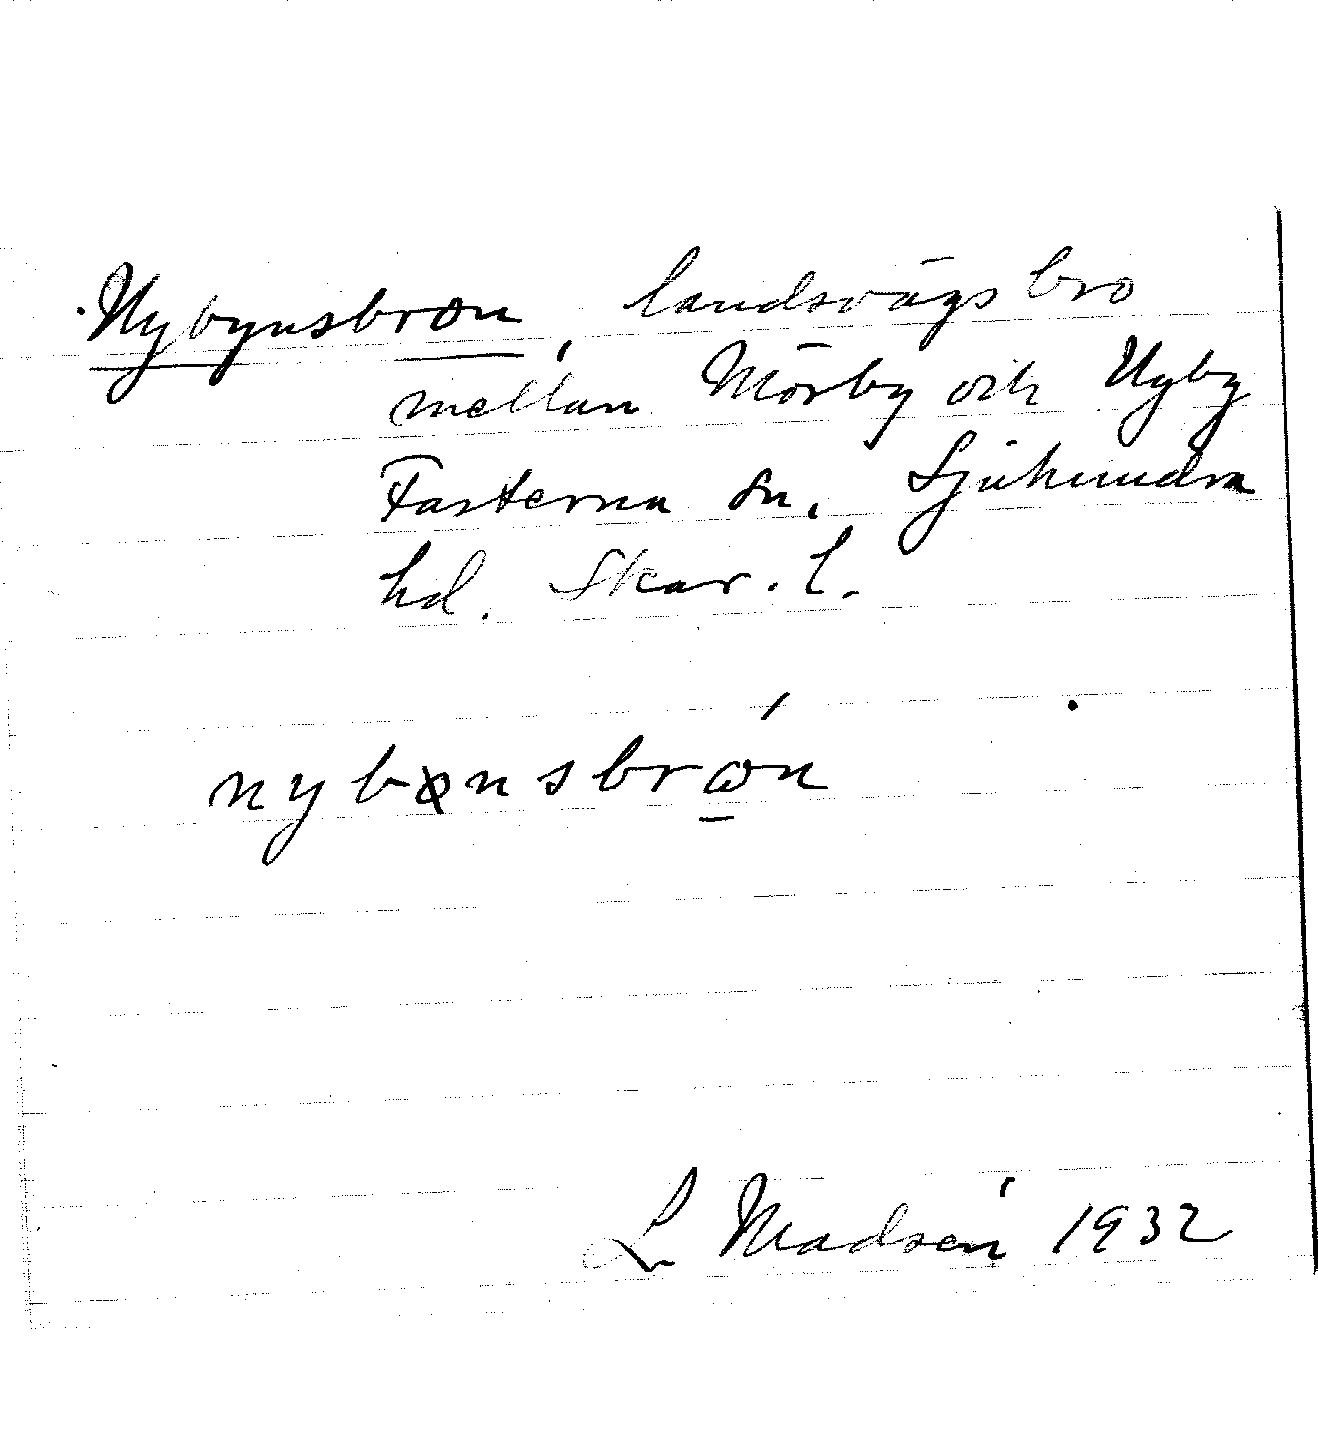 Nybynsbron, landsvägsbro
mellan Mörby och Nyby
Fasterna sn. Sjuhundra
hd. Skar. l.
L Madsén 1932